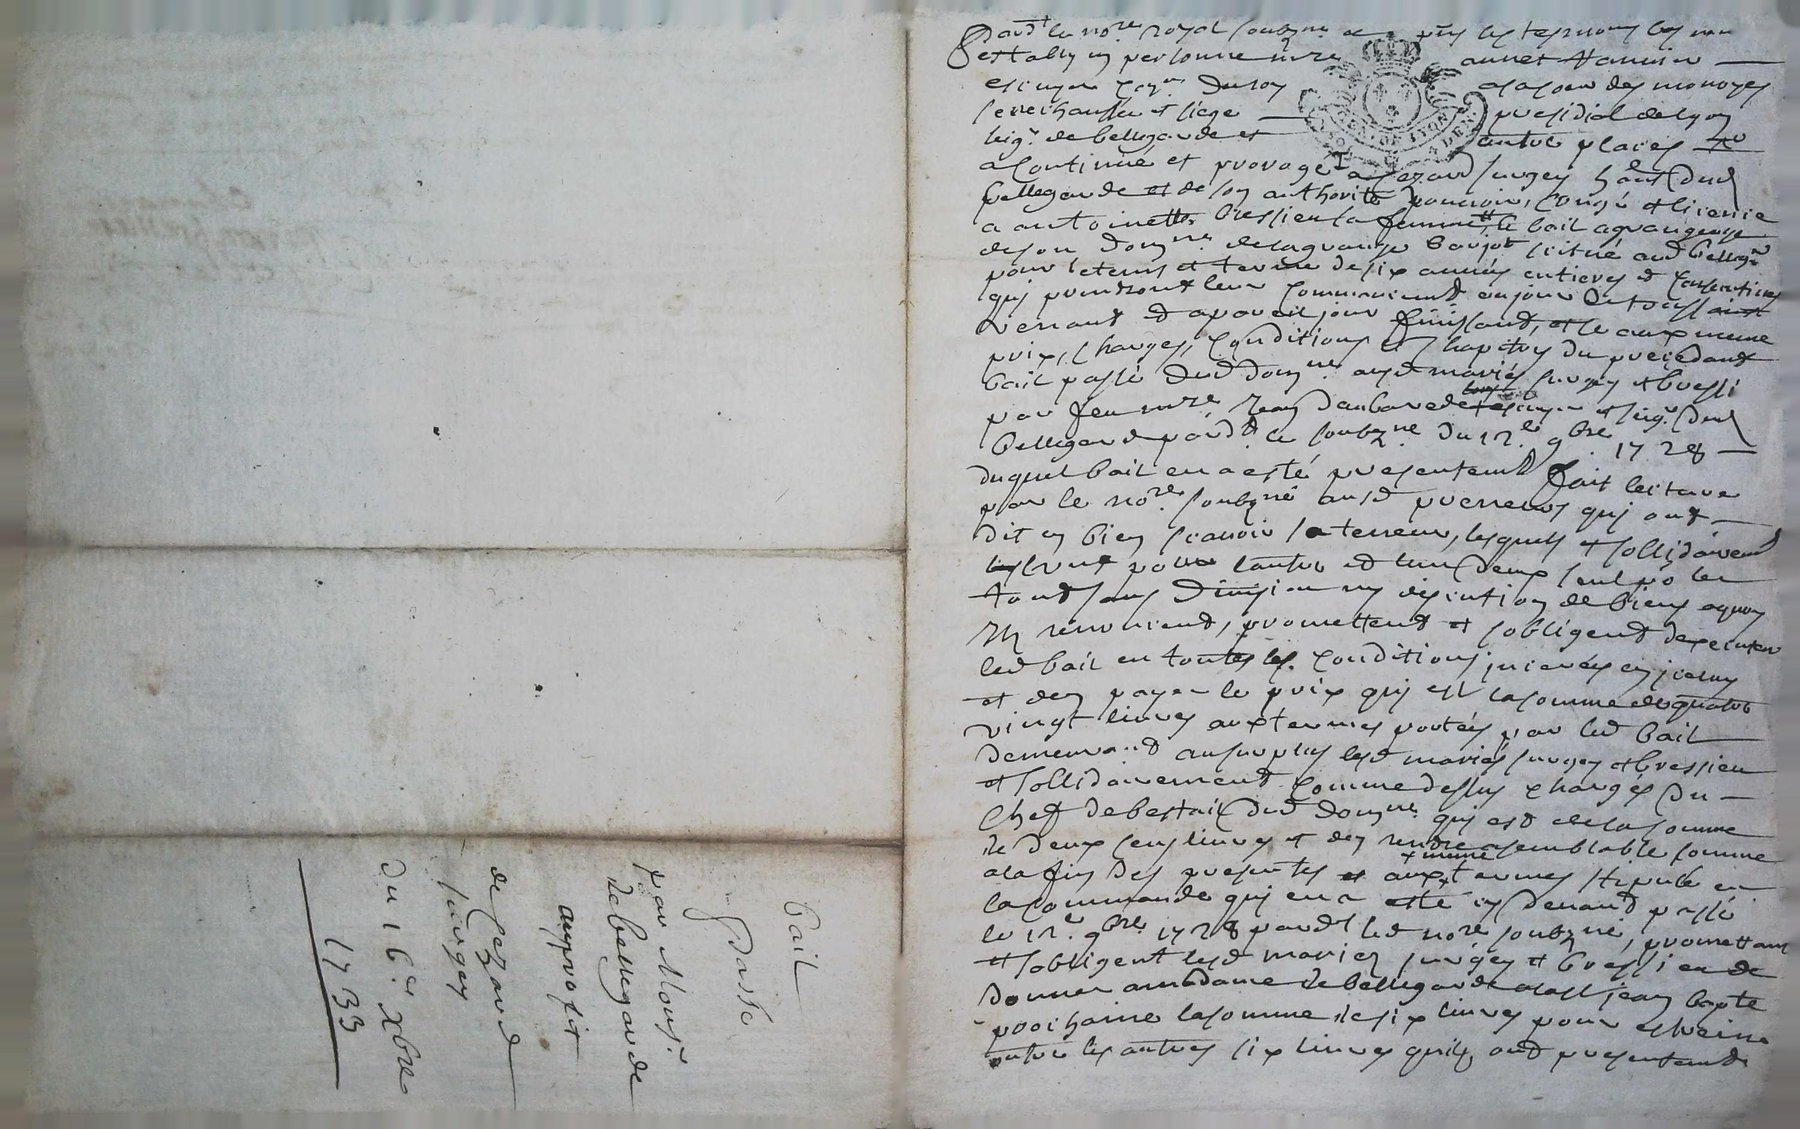 Bail
Passé
par Monsr
de bellegarde
au proffit
de Cezard
surgey
du 16e Xbre
1733
Pardt le nore Royal soubzné et pnts les tesmoins
estably en personne mre annet
escuyer Coner du Roy a la cour des monoyes
senechaussée et siege presidial de lyon
seigr de bellegarde et autres places
a continué et prorogé a Cezard surgey
bellegarde et de son authorité pouvoir, congé et licence
a antoinette bressieu sa femme le bail a grangeage
de son domne de la grange scitué aud bellegde
pour le tems et terme de six années entieres et consecutives
qui prendront leur commencement au jour de toussaint
venant et a pareil jour finissant, et ce aux meme
prix, charges, conditions et chapitres du precedant
bail passé dud domne ausd mariés surgey et bressi
par feu mre Jean escuyer et seigr dud
bellegarde pardt le soubzné du 12e 9bre 1728
duquel bail en a esté presentement fait lecture
par le nore soubzné ausd preneurs qui ont
dit en bien scavoir la teneur, lesquels et sollidairement
l'un pour l'autre et l'un deux seul pr le
tout sans division ny discution de biens a quoy
ils renoncent, promettent et s'obligent d'executer
led bail en toutes les conditions
et den payer le prix qui est la somme de quatre
vingt livres aux termes portés par led bail
demeurant au surplus lesd mariés surgey et bressieu
et sollidairement comme dessus chargés du
Chef de bestail dud domne qui est de la somme
de deux cens livres et den rendre semblable somme
a la fin des presentes aux meme termes stipulé en
la commande qui en a esté cy devant passé
le 12e 9bre 1728 pardt led nore soubzné, promettant
et s'obligent lesd mariez surgey et bressieu de
donner a madame de bellegarde a la st jean bapte
prochaine la somme de six livres pour estreine
outre les autres six livres quils ont presentement